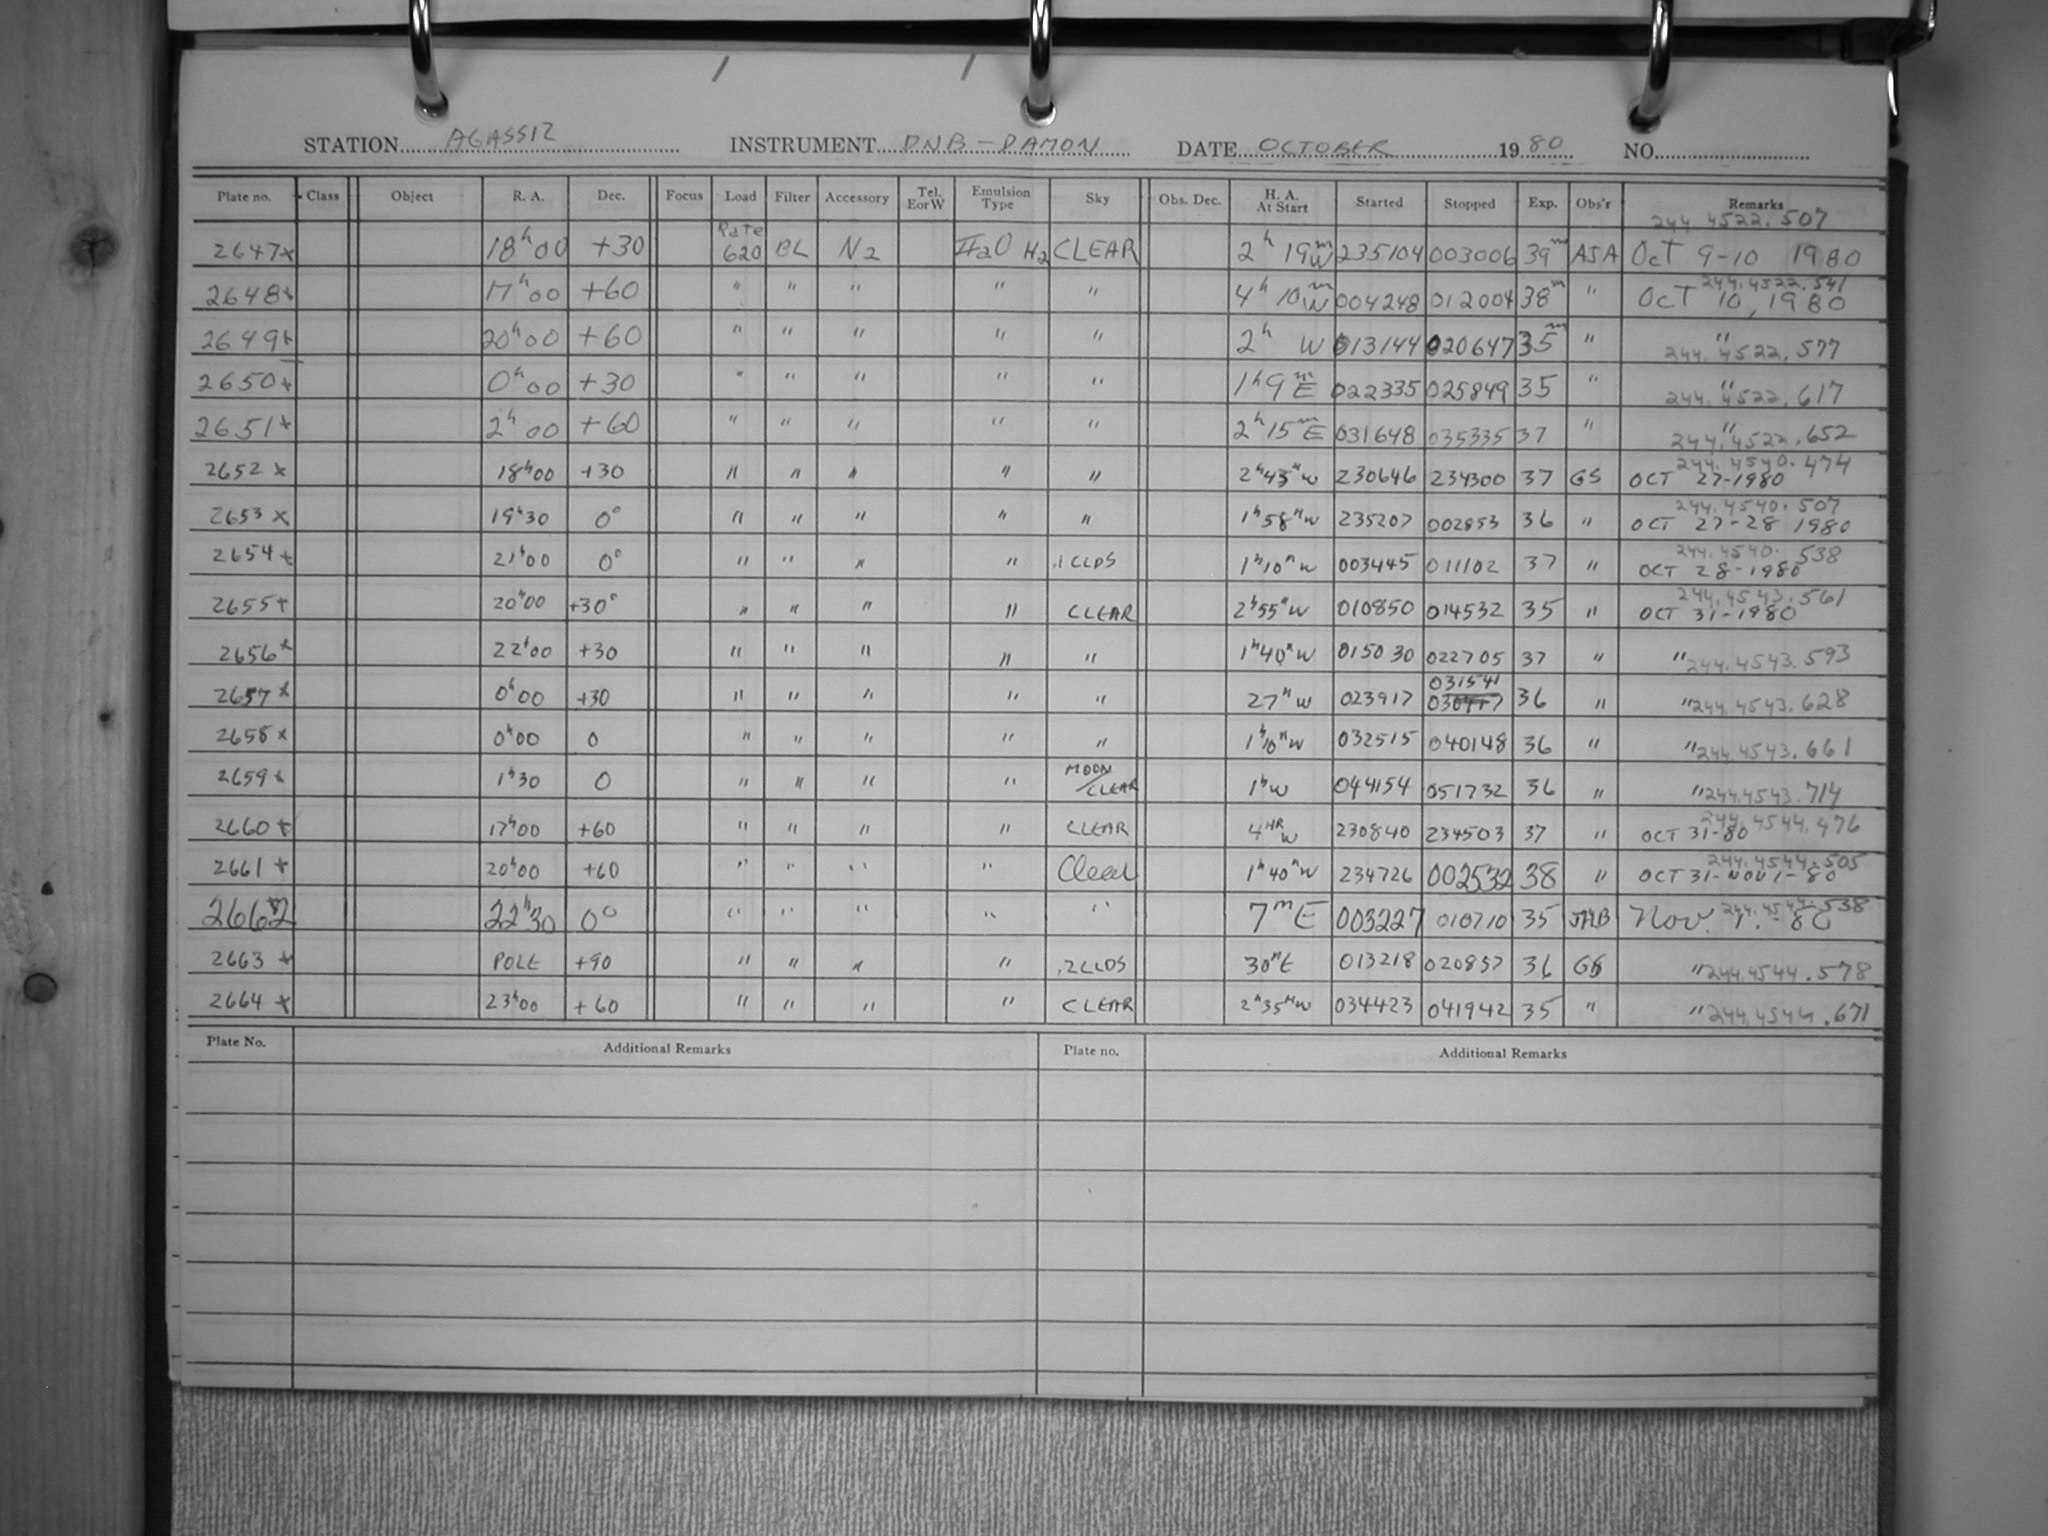 STATION AGASSIZ INSTRUMENT DNB-DAMON DATE OCTOBER 1980 NO.
Plate no. Class Object R. A. Dec. Focus Load Filter Accessory Tel. EorW Emulsion Type Sky Obs. Dec. H. A. At Start Started Stopped Exp. Obs'r Remarks
244.4522.507
2647x 18h00 +30 Rate 620 BL N2 IIaO H2 CLEAR 2h 19m W 235104 003006 39m ASA Oct 9-10 1980
244.4522.541
2648x 17h00 +60 " " " " " 4h 10m W 004248 012004 38m " Oct 10, 1980
2649x 20h00 +60 " " " " " 2h W 013144 020647 35m " " 244.4522.577
2650x 0h00 +30 " " " " " 1h9m E 022335 025849 35 " " 244.4522.617
2651x 2h00 +60 " " " " " 2h15m E 031648 035335 37 " " 244.4522.652
244.4540.474
2652 x 18h00 +30 " " " " " 2h43m W 230646 234300 37 GS OCT 27-1980
244.4540.507
2653 x 19h30 0° " " " " " 1h58m W 235207 002853 36 " OCT 27-28 1980
244.4540.538
2654 x 21h00 0° " " " " .1 CLDS 1h10m W 003445 011102 37 " OCT 28-1980
244.4543.561
2655x 20h00 +30° " " " " CLEAR 2h55m W 010850 014532 35 " OCT 31-1980
2656x 22h00 +30 " " " " " 1h40m W 015030 022705 37 " " 244.4543.593
031541
2657x 0h00 +30 " " " " " 27m W 023917 36 " " 244.4543.628
2658x 0h00 0 " " " " " 1h10m W 032515 040148 36 " " 244.4543.661
2659x 1h30 0 " " " " MOON/CLEAR 1h W 044154 051732 36 " " 244.4543.714
244.4544.476
2660x 17h00 +60 " " " " CLEAR 4HR W 230840 234503 37 " OCT 31-80
244.4544.505
2661 x 20h00 +60 " " " " Clear 1h40m W 234726 002532 38 " OCT 31-NOV 1-80
244.4544.538
2662 22h30 0° " " " " " 7m E 003227 010710 35 JAB Nov. 1.-80
2663 x POLE +90 " " " " .2CLDS 30m E 013218 020857 36 GS " 244.4544.578
2664 x 23h00 +60 " " " " CLEAR 2h35m W 034423 041942 35 " " 244.4544.671
Plate No. Additional Remarks Plate no. Additional Remarks